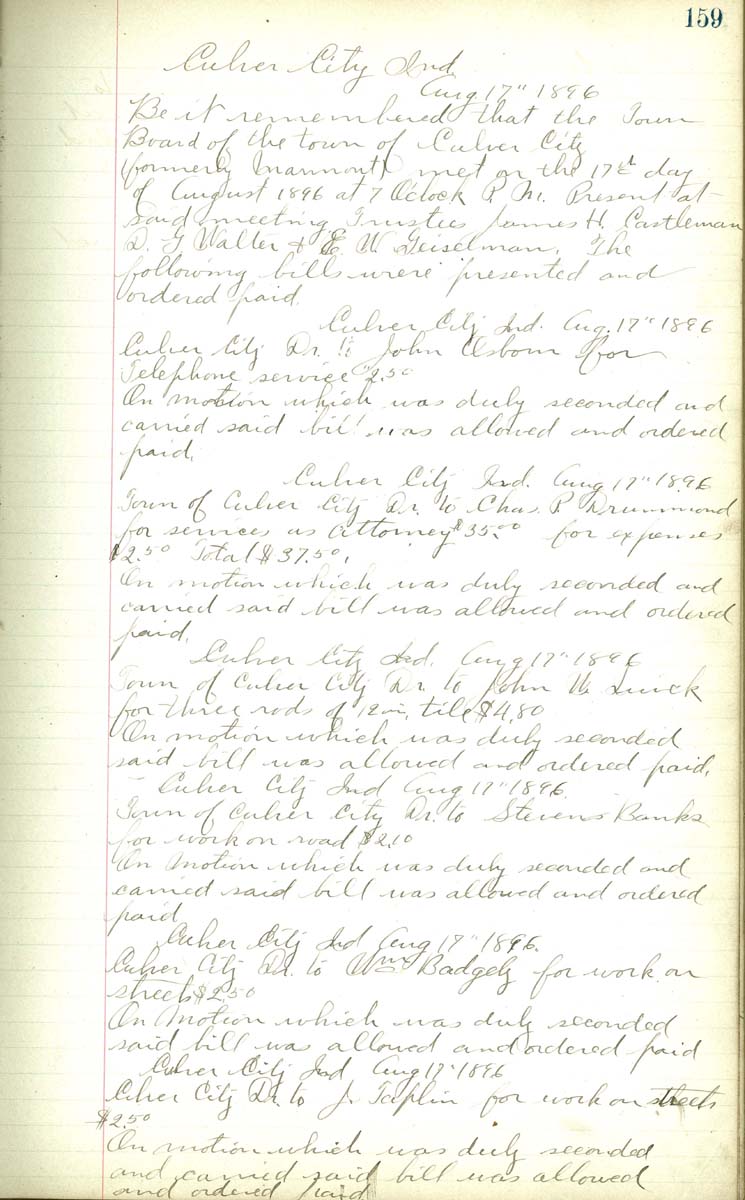 159
Culver City Ind
Aug 17" 1896
Be it remembered that the Town
Board of the town of Culver City
(formerly Marmont) met on the 17th day
of August 1896 at 7 Oclock P. M. Present at
said meeting Trustees James H. Castleman
D. G Walter & E. W. Geiselman. The
following bills were presented and
ordered paid.
Culver City Ind. Aug. 17" 1896
Culver City Dr. to John Osborn for
Telephone service 2.50
On motion which was duly seconded and
carried said bill was allowed and ordered
paid.
Culver City Ind. Aug 17" 1896
Town of Culver City Dr. to Chas. P. Drummond
for services as Attorney $35.00 for expenses
$2.50 Total $37.50.
On motion which was duly seconded and
carried said bill was allowed and ordered
paid.
Culver City Ind. Aug 17" 1896
Town of Culver City Dr. to John W. Quick
for three rods of 12 in. tile $4.80
On motion which was duly seconded
said bill was allowed and ordered paid.
Culver City Ind Aug 17" 1896.
Town of Culver City Dr. to Stevens Banks
for work on road $2.10
On Motion which was duly seconded and
carried said bill was allowed and ordered
paid
Culver City Ind Aug 17" 1896.
Culver City Dr. to Wm Badgely for work on
streets $2.50
On Motion which was duly seconded
said bill was allowed and ordered paid
Culver City Ind Aug 17" 1896
Culver City Dr. to J. Taplin for work on streets
$2.50
On motion which was duly seconded
and carried said bill was allowed
and ordered paid